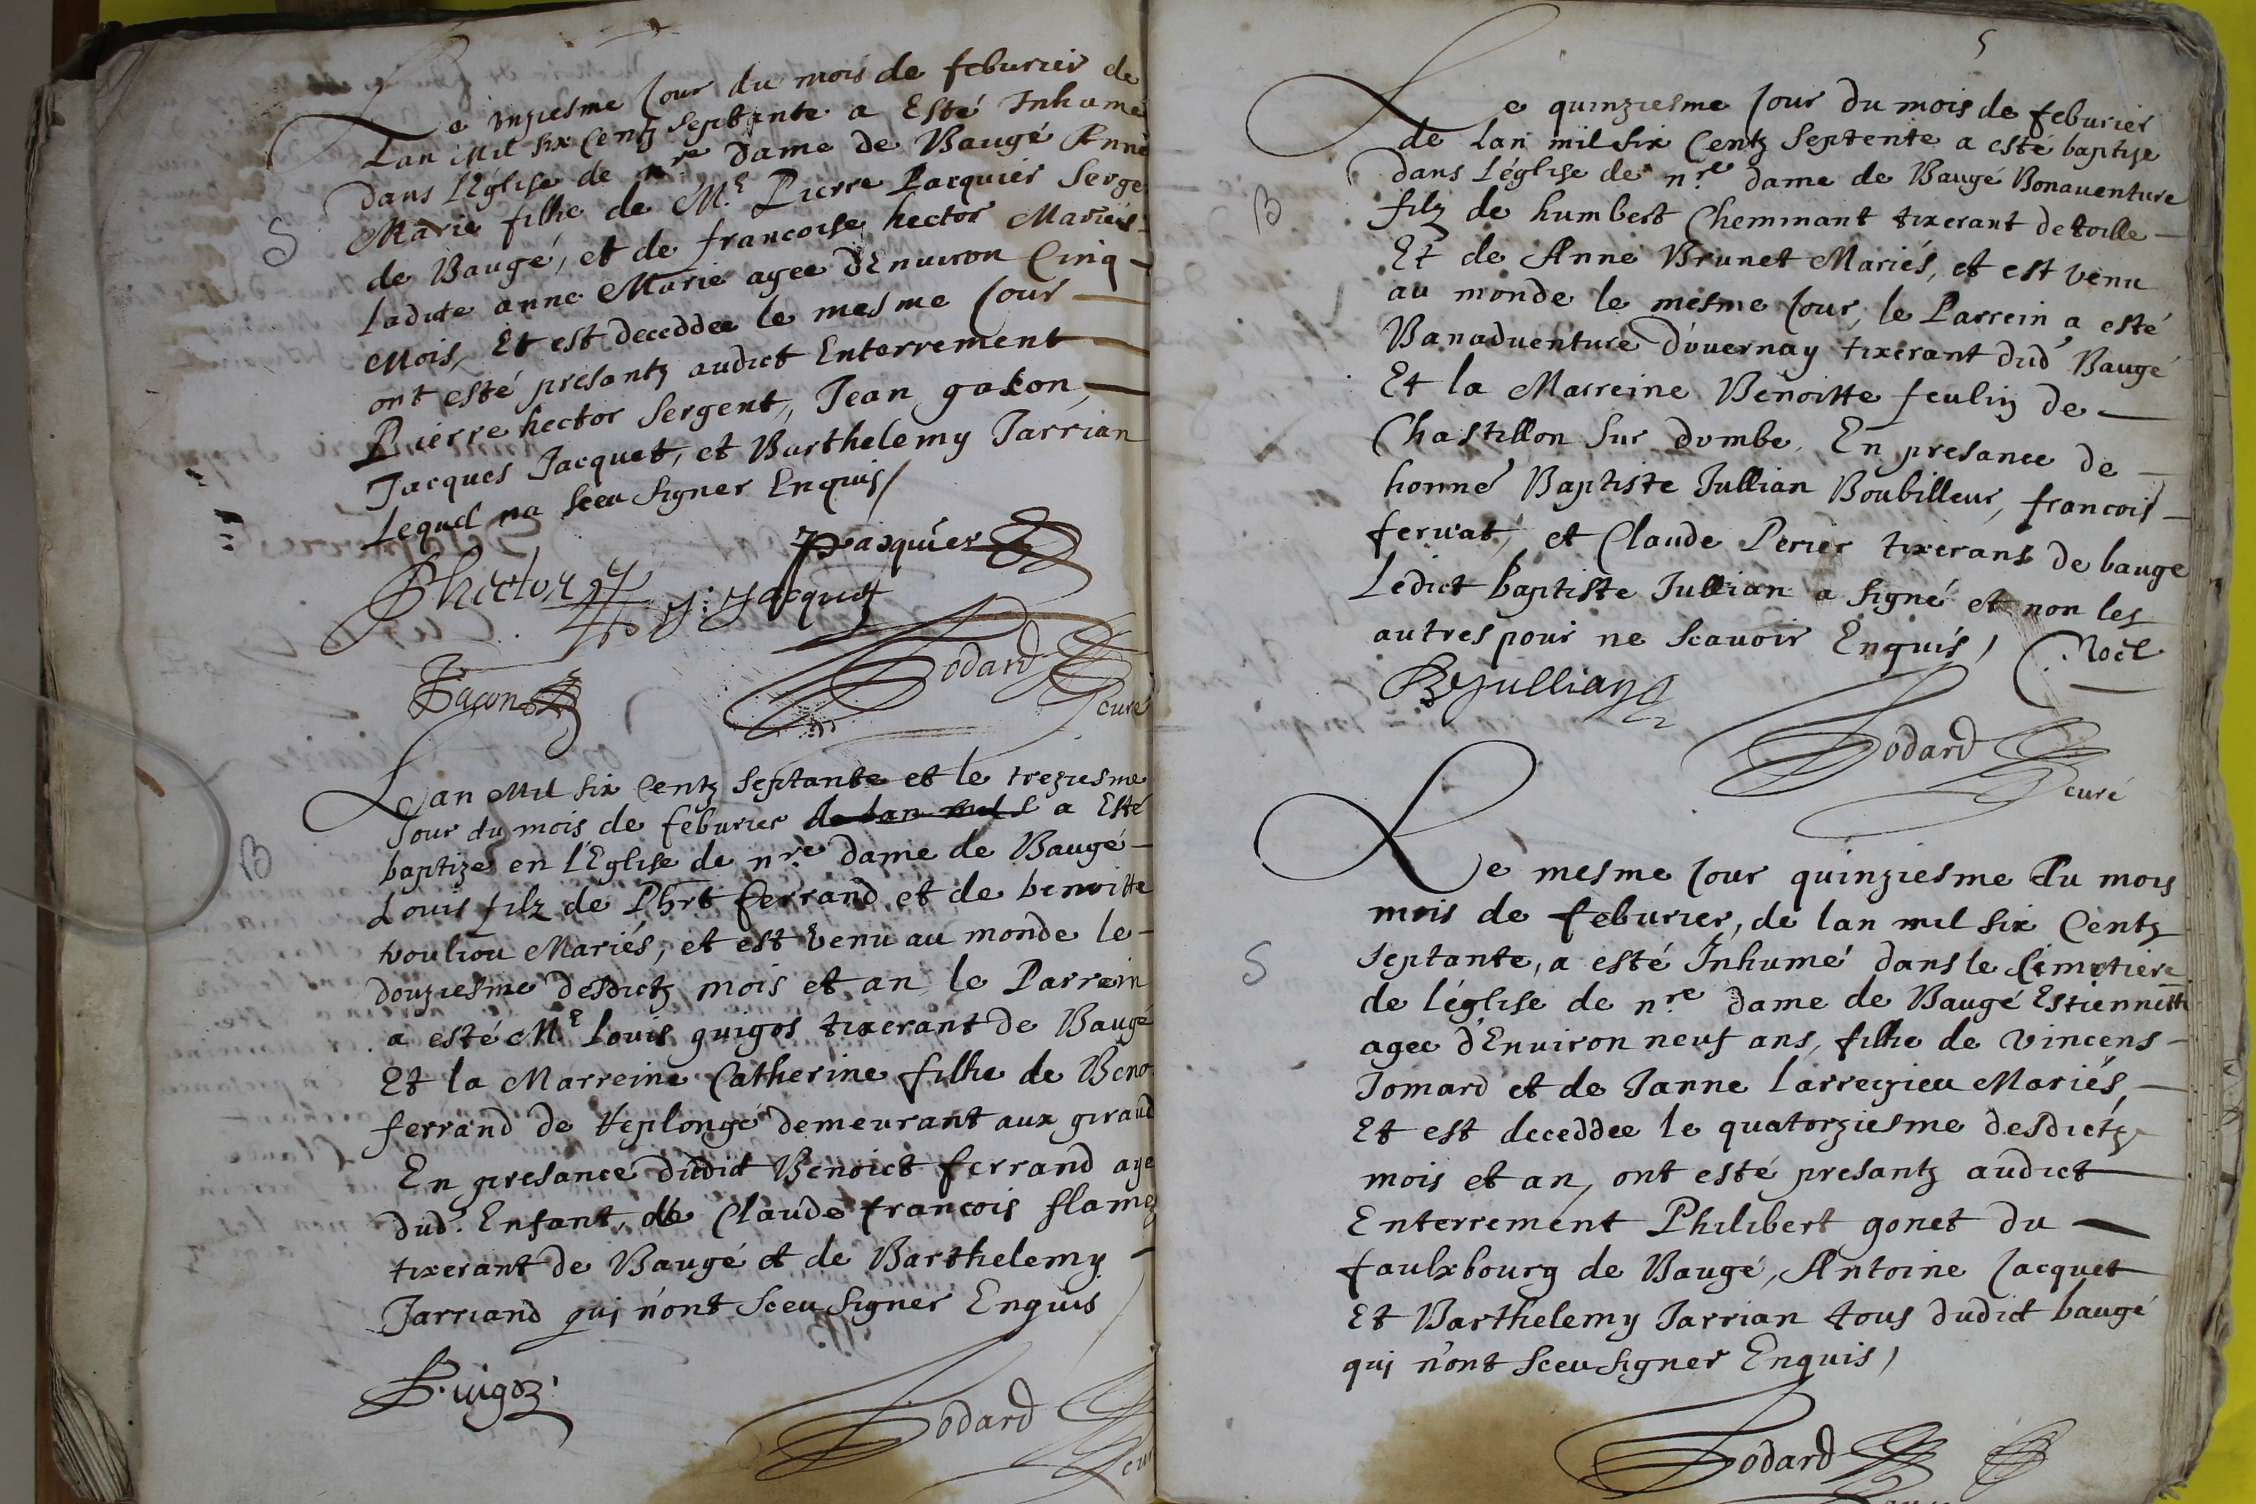 Le unziesme Jour du mois de feburier de
Lan Mil six Centz Septante a Esté Inhumé
dans L'Eglise de nre dame de Baugé Anne
S
Marie filhe de Me. Pierre Pacquier Serge
de Baugé, et de francoise hector Mariés
Ladite anne Marie agee d'Enuiron Cinq
Mois, Et est deceddee le mesme Jour
ont esté presantz audict Enterrement
Pierre hector Sergent, Jean gakon
Jacques Jacquet, et Barthelemy Jarrian
Lequel na sceu Signer Enquis /
Pasquier
Phector J. Jacquet
Godard
curé
Lan Mil six Centz Septante et le treziesme
Jour du mois de feburier de lan mil a Esté
B
baptize en L'Eglise de nre dame de Baugé
Louis filz de Phrt ferrand et de benoitte
vouliou Mariés, et est Venu au monde le
douziesme desdictz mois et an le Parrein
a esté Me Louis guigos tixerant de Baugé
Et la Marreine Catherine filhe de Beno
ferrand de Veplongé demeurant aux giraud
En presance dudict Benoict ferrand aye
dud. Enfant, de Claude francois flame
tixerant de Baugé et de Barthelemy
Jarriand qui n'ont Sceu Signer Enquis
Guigoz
Godard
cur
5
Le quinziesme Jour du mois de feburier
de Lan mil six Centz Septente a esté baptize
dans L'église de nre dame de Baugé Bonauenture
B
filz de humbert Chemmant tixerant de toille
Et de Anne Brunet Mariés, et est venu
au monde le mesme Jour, le Parrein a esté
Banaduenture d'uuernay tixerant dud Baugé
Et la Marreine Benoitte feulin de
Chastillon Sur dombe, En presance de
honné Baptiste Jullian Boubilleur, francois
feruat, et Claude Perier tixerans de bauge
Ledict baptiste Jullian a signé et non les
autres pour ne scauoir Enquis, Noël
B Jullian
Godard
curé
Le mesme Jour quinziesme du mois
mois de feburier, de lan mil six Centz
Septante, a esté Inhumé dans le Cimetiere
S
de l'église de nre dame de Baugé Estiennette
agee d'Enuiron neuf ans, filhe de Vincens
Jomard et de Janne Larreyieu Mariés,
Et est deceddee le quatorziesme desdictz
mois et an, ont esté presantz audict
Enterrement Philibert gonet du
faulxbourg de Baugé, Antoine Jacquet
Et Barthelemy Jarrian tous dudict baugé
qui n'ont Sceu Signer Enquis,
Godard